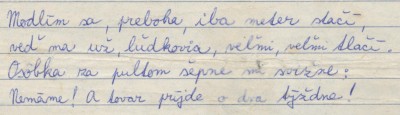 Modlím sa, preboha, iba meter stačí,
veď ma už, ľúdkovia, veľmi, veľmi tlačí.
Osôbka za pultom šepne mi svižne:
Nemáme! A tovar príjde o dva týždne!